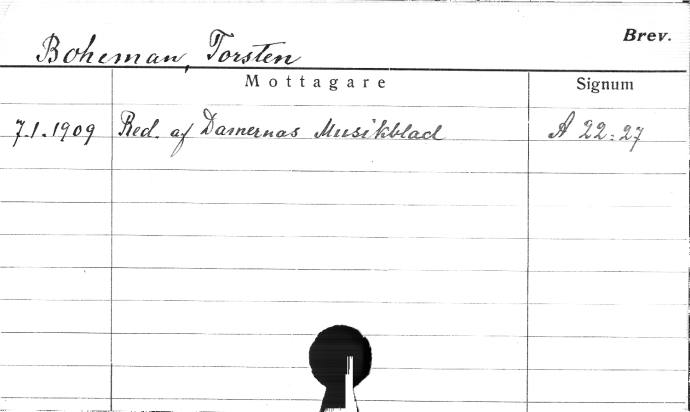 Brev.
Boheman, Torsten
Mottagare Signum
7.1.1909 Red. af Damernas Musikblad A 22:27